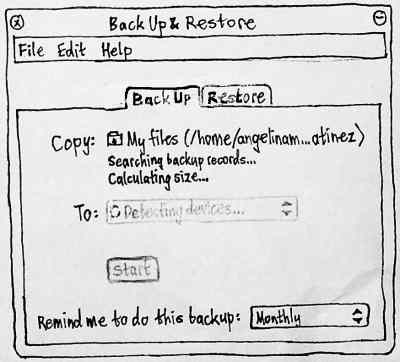 Back Up & Restore
File Edit Help
Back Up Restore
Copy: My files (/home/angelinam...atinez)
Searching backup records...
Calculating size...
To: Detecting devices...
Start
Remind me to do this backup: Monthly